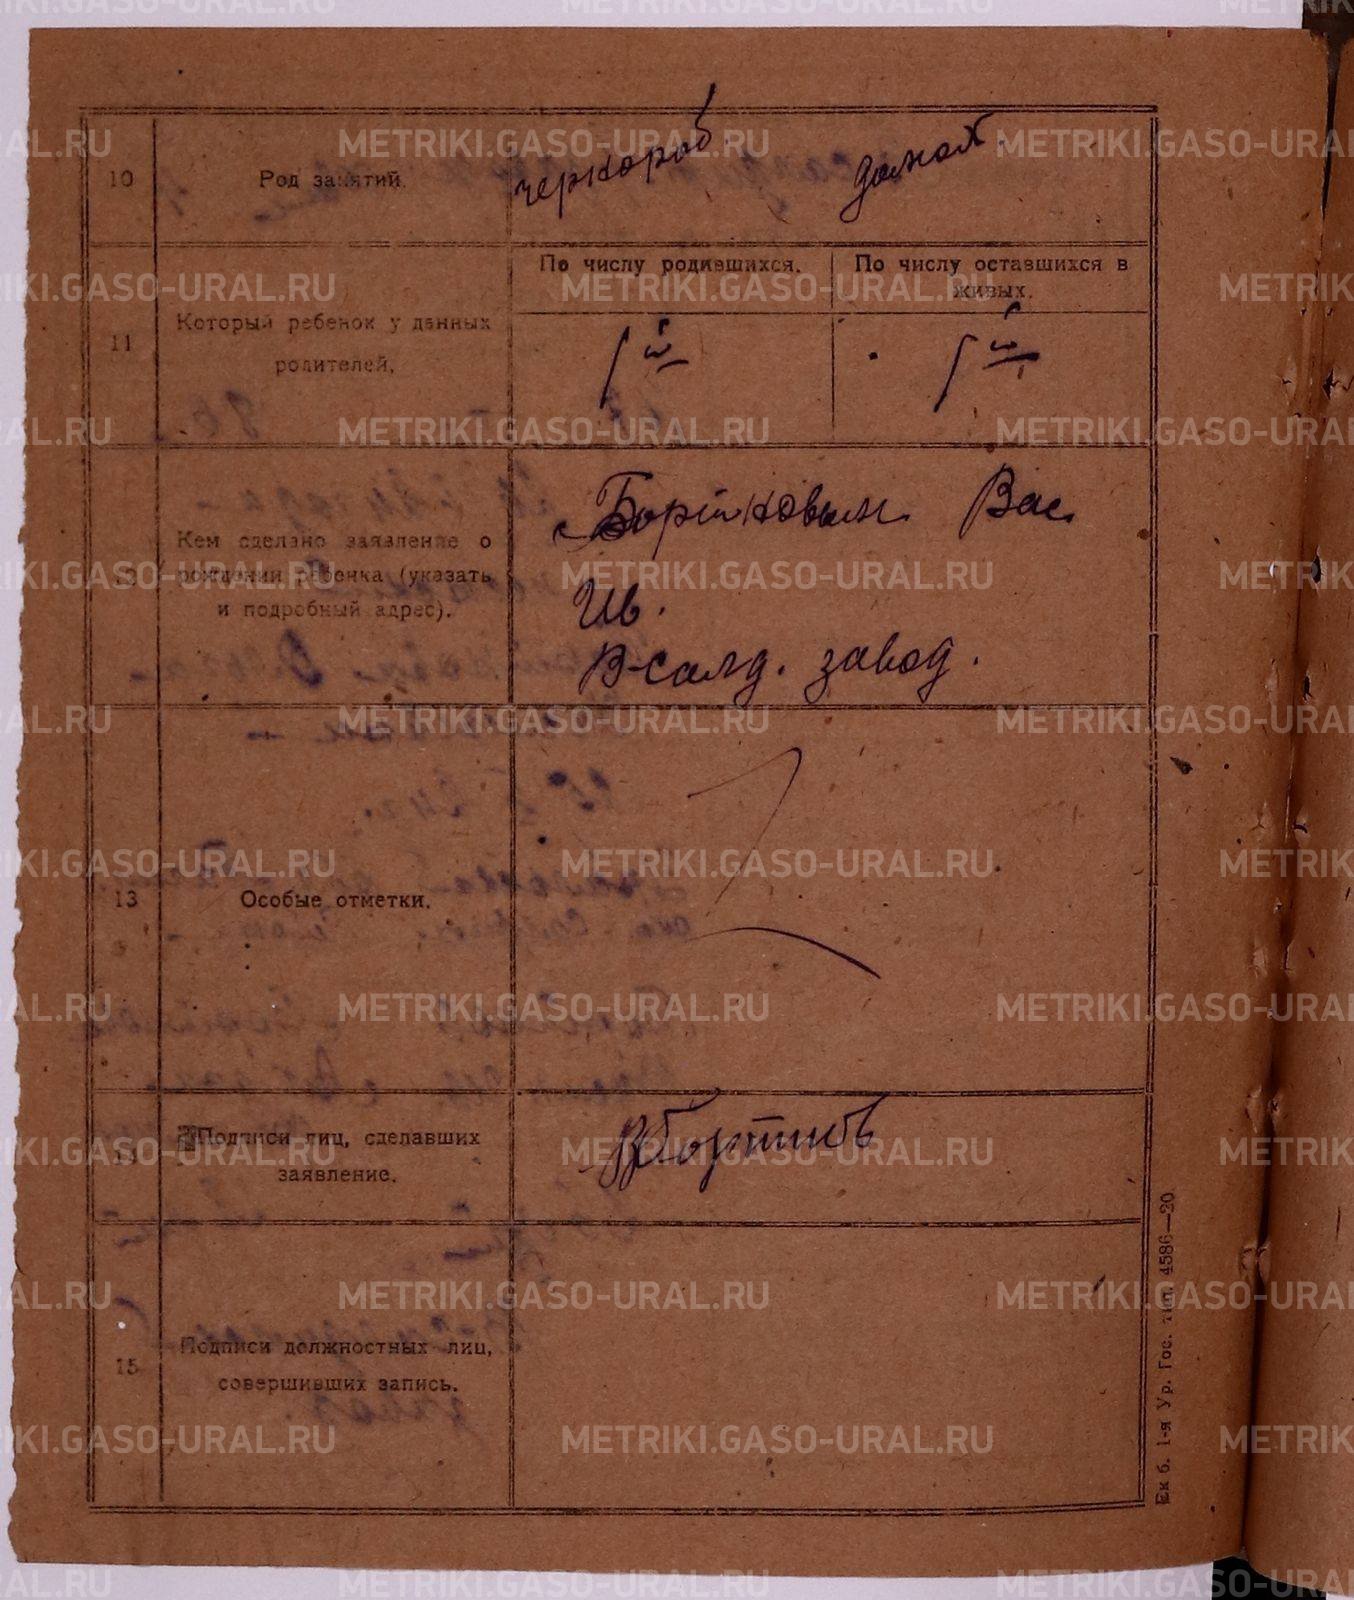 10
Род занятий.
чернораб. домох.
11
Который ребенок у данных
родителей.
По числу родившихся.
По числу оставшихся в
живых.
1й
1й
12
Кем сделано заявление о
рождении ребенка (указать
и подробный адрес).
Вас.
Ив.
В-салд. завод.
13
Особые отметки.
14
Подписи лиц, сделавших
заявление.
15
Подписи должностных лиц,
совершивших запись.
Ек б. 1-я Ур. Гос. тип. 4586—20
METRIKI.GASO-URAL.RU